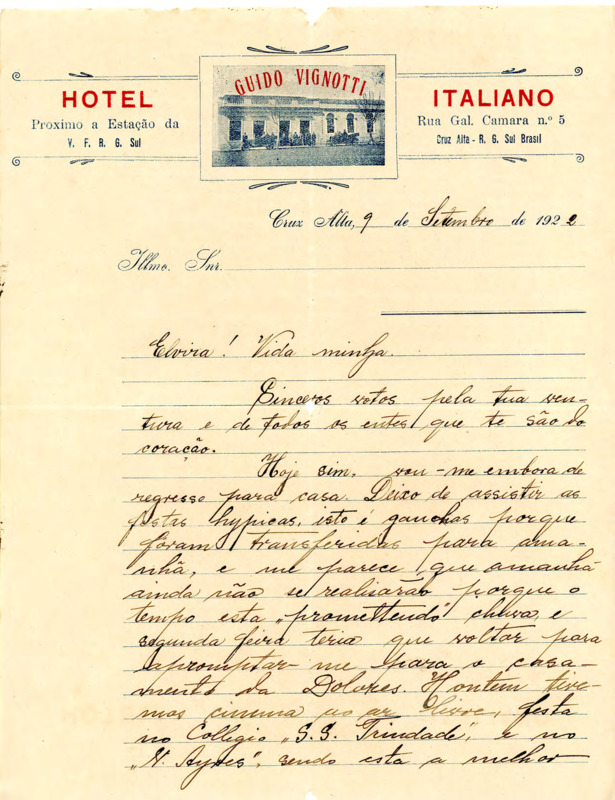 GUIDO VIGNOTTI
HOTEL
Proximo a Estação da
V. F. R. G. Sul
ITALIANO
Rua Gal. Camara n.º 5
Cruz Alta - R. G. Sul Brasil
Cruz Alta, 9 de Setembro de 1922
Illmo. Snr.
Elvira! Vida minha.
Sinceros votos pela tua ven-
tura e de todos os entes que te são do
coração.
Hoje sim, vou-me embora de
regresso para casa. Deixo de assistir as
festas hypicas, isto é gauchas porque
fôram transferidas para ama-
nhã, e me parece que amanhã
ainda não se realisarão porque o
tempo esta „promettendo" chuva, e
segunda feira teria que voltar para
apromptar-me para o casa-
mento da Dolores. Hontem tive-
mos cinema ao ar livre, festa
no Collegio „S.S. Trindade", e no
„V. Ayres", sendo esta a melhor